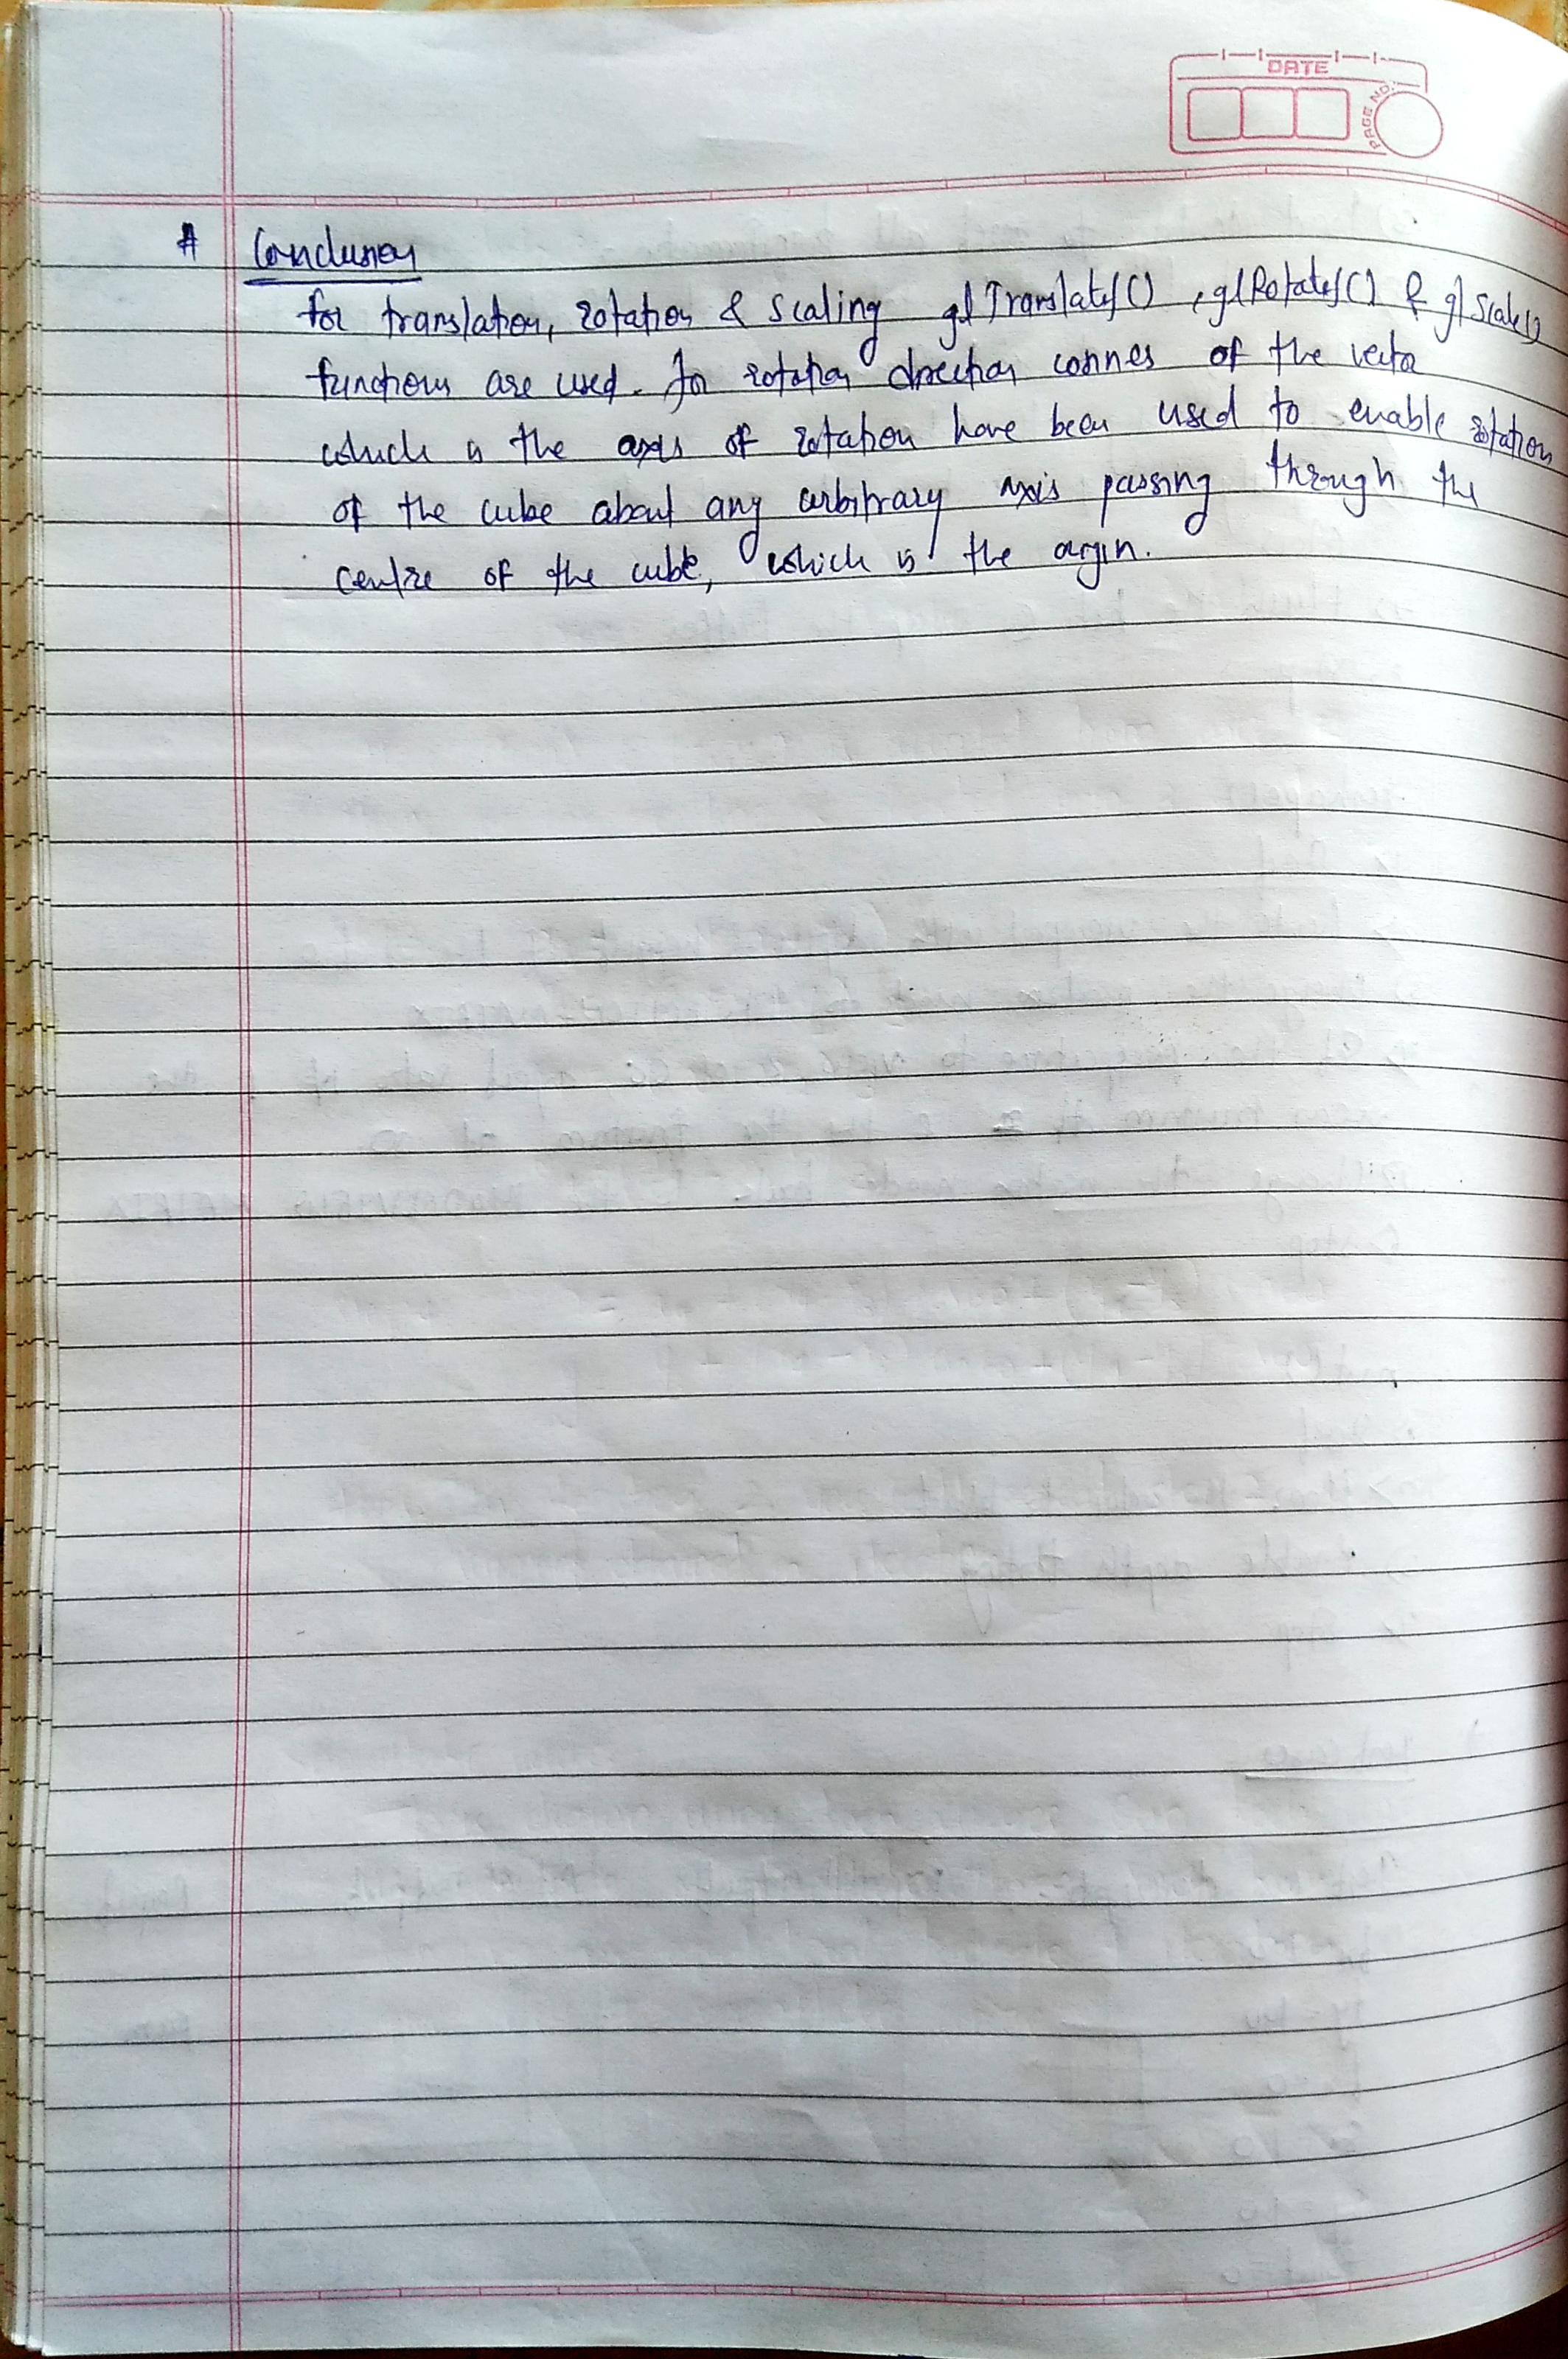 DATE
PAGE NO.
# Conclusion
for translation, rotation & scaling glTranslatef(), glRotatef() & glScalef()
functions are used. For rotation direction cosines of the vector
which is the axis of rotation have been used to enable rotation
of the cube about any arbitrary axis passing through the
centre of the cube, which is the origin.